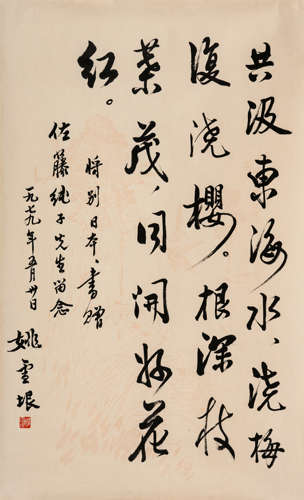 共汲東海水、澆梅
復澆櫻。根深枝
葉茂、同開好花
紅。
將别日本、書贈
佐藤純子先生留念
一九七九年五月卅日
姚雪垠